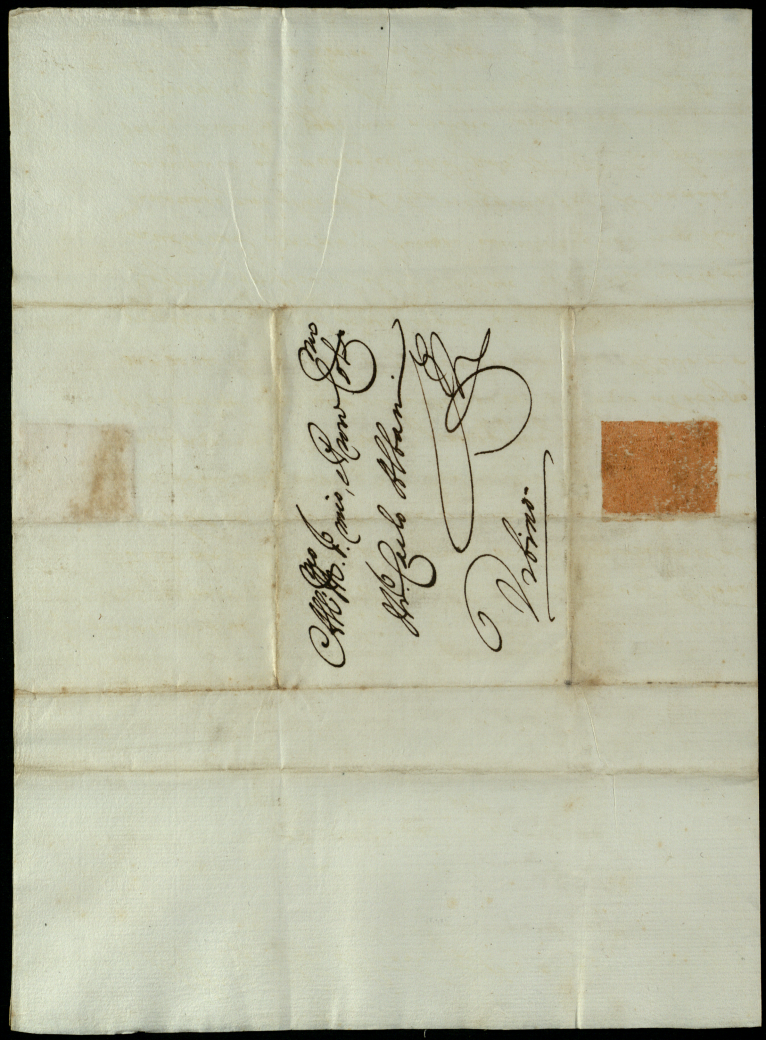 All' Ill.mo Sig.r mio, e Pron Col.mo
Il Sig.r Carlo Albani
Urbino.